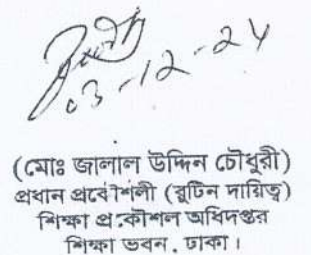 03-12-24
(মোঃ জালাল উদ্দিন চৌধুরী)
প্রধান প্রবেশিলী (রুটিন দায়িত্ব)
শিক্ষা প্রকৌশল অধিদপ্তর
শিক্ষা ভবন, ঢাকা।